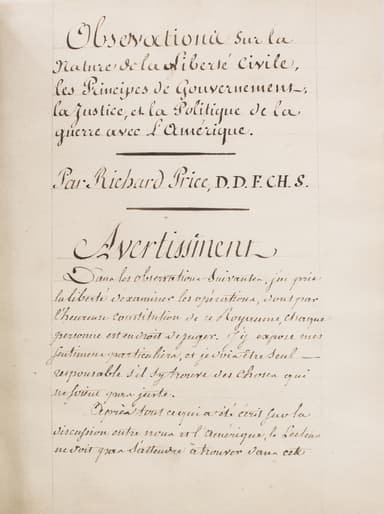 Observations sur la
Nature de la Liberté Civile,
les Principes de Gouvernement,
la Justice, et la Politique de la
guerre avec L'Amérique.
Par Richard Price, D. D. F. CH. S.
Avertissment
Dans les observations suivantes, j'ai pris
la liberté d'examiner les opérations, dont par
l'heureuse constitution de ce Royaume, chaque
personne est en droit de juger. J'y expose mes
sentimens particuliers, et je dois être seul
responsable s'il s'y trouve des choses qui
ne soient pas justes.
Après tout ce qui a été écrit sur la
discussion entre nous et l'Amérique, le Lecteur
ne doit pas s'attendre à trouver dans cet